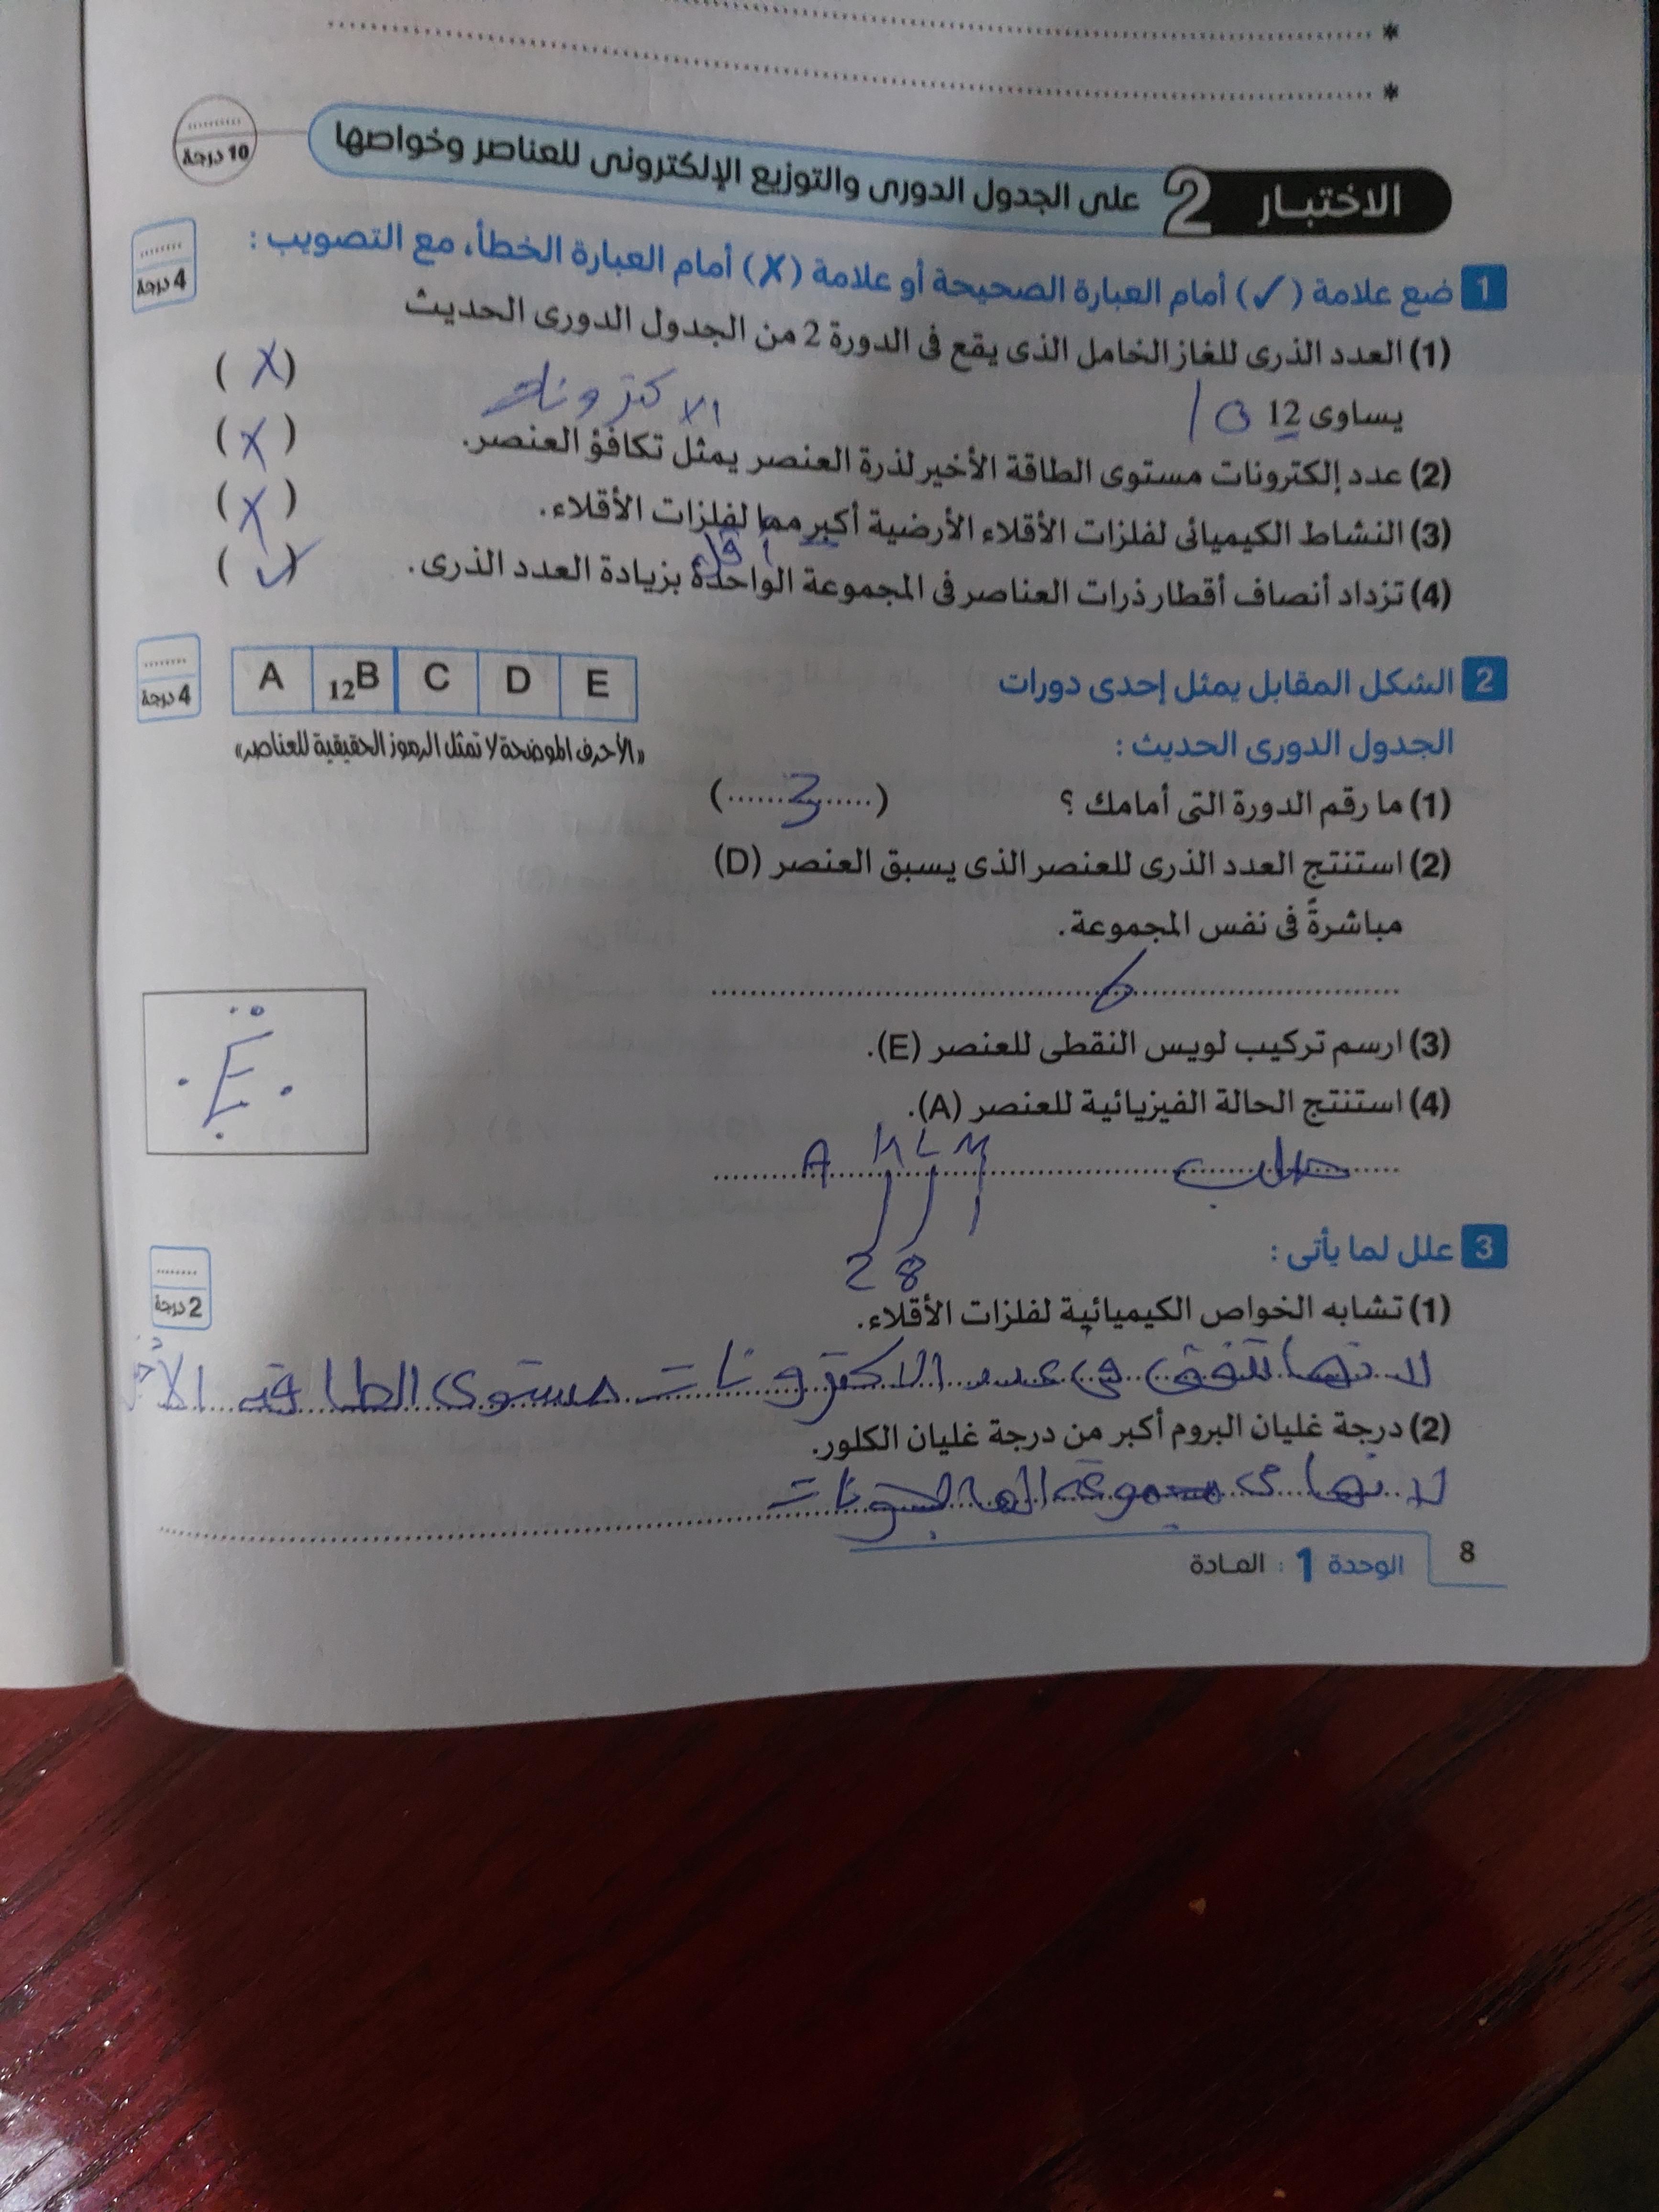 * ........................
* ........................
الاختبار 2 على الجدول الدورى والتوزيع الإلكترونى للعناصر وخواصها
........ 10 درجة
1 ضع علامة (✓) أمام العبارة الصحيحة أو علامة (✗) أمام العبارة الخطأ، مع التصويب :
........ 4 درجة
(1) العدد الذرى للغاز الخامل الذى يقع فى الدورة 2 من الجدول الدورى الحديث
يساوى 12 (X)
الاكترونات
(2) عدد إلكترونات مستوى الطاقة الأخير لذرة العنصر يمثل تكافؤ العنصر. (X)
(3) النشاط الكيميائى لفلزات الأقلاء الأرضية أكبر مما لفلزات الأقلاء. (X)
أقل
(4) تزداد أنصاف أقطار ذرات العناصر فى المجموعة الواحدة بزيادة العدد الذرى. (✓)
2 الشكل المقابل يمثل إحدى دورات
الجدول الدورى الحديث :
A 12B C D E
........ 4 درجة
«الأحرف الموضحة لا تمثل الرموز الحقيقية للعناصر»
(1) ما رقم الدورة التى أمامك ؟ (......3......)
(2) استنتج العدد الذرى للعنصر الذى يسبق العنصر (D)
مباشرةً فى نفس المجموعة.
6
(3) ارسم تركيب لويس النقطى للعنصر (E).
E
(4) استنتج الحالة الفيزيائية للعنصر (A).
صلب A K L M
2 8 1
3 علل لما يأتى :
........ 2 درجة
(1) تشابه الخواص الكيميائية لفلزات الأقلاء.
لانها تتفق فى عدد الاكترونات مستوى الطاقه
(2) درجة غليان البروم أكبر من درجة غليان الكلور.
لانها مجموعة الهالجونات
8 الوحدة 1 : المادة